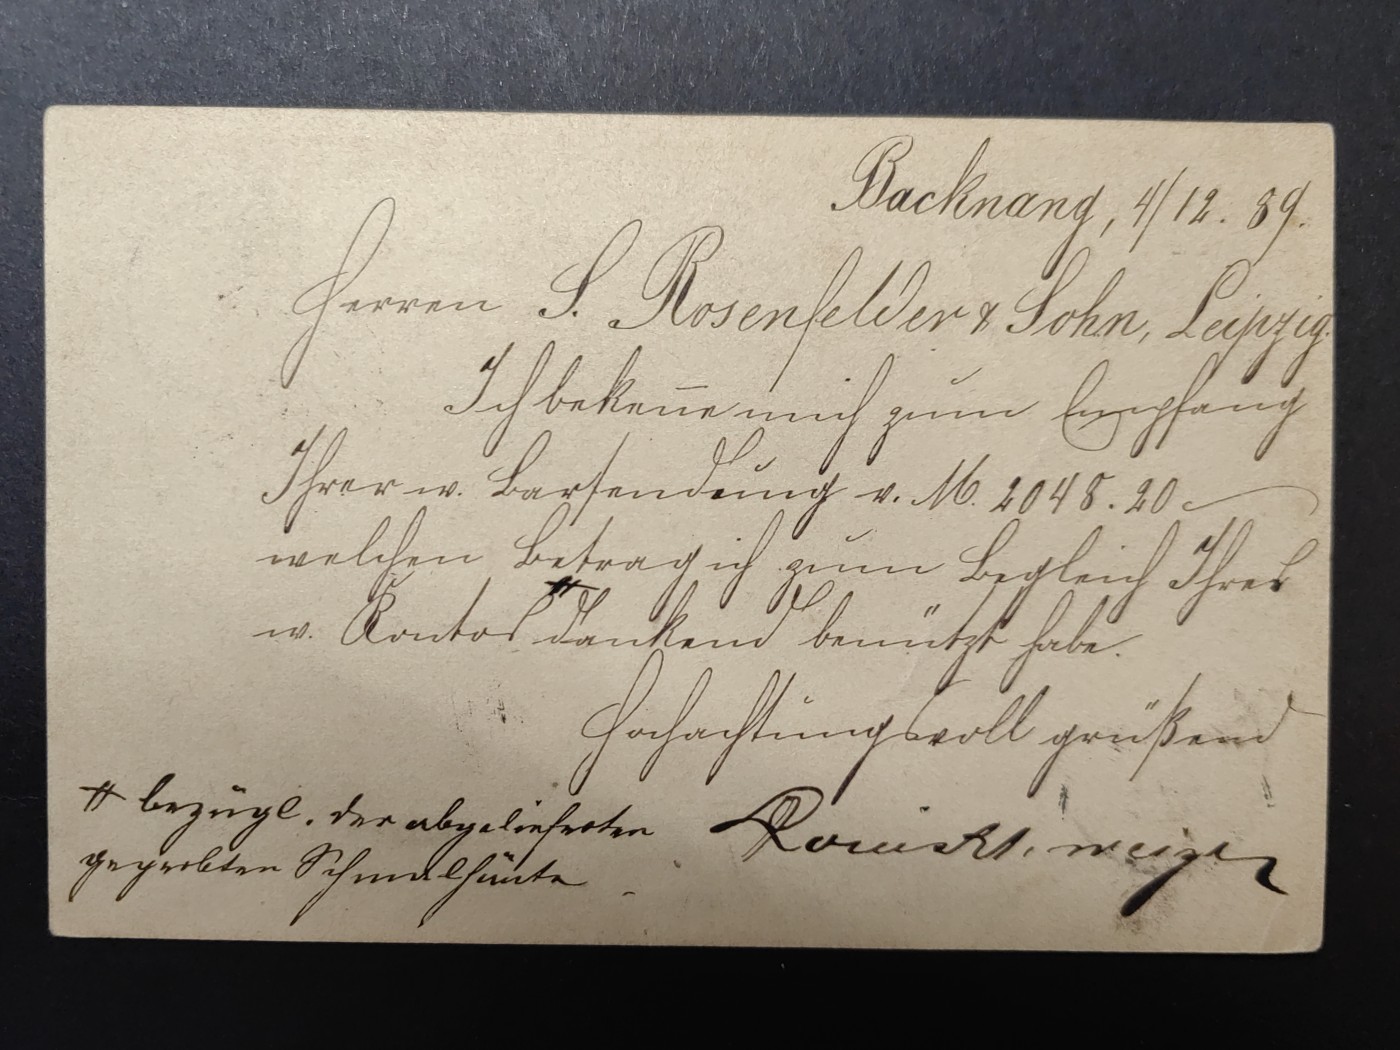 Backnang, 4/12. 89.
Herren S. Rosenfelder & Sohn, Leipzig.
Ich beken̄e mich zum Empfang
Ihrer w. Barsendung v. M. 2048.20
welchen Betrag ich zum Begleich Ihres
w. Kontos # dankend benützt habe.
Hochachtungsvoll grüßend
# bezügl. der abgelieferten
Schmalhäute